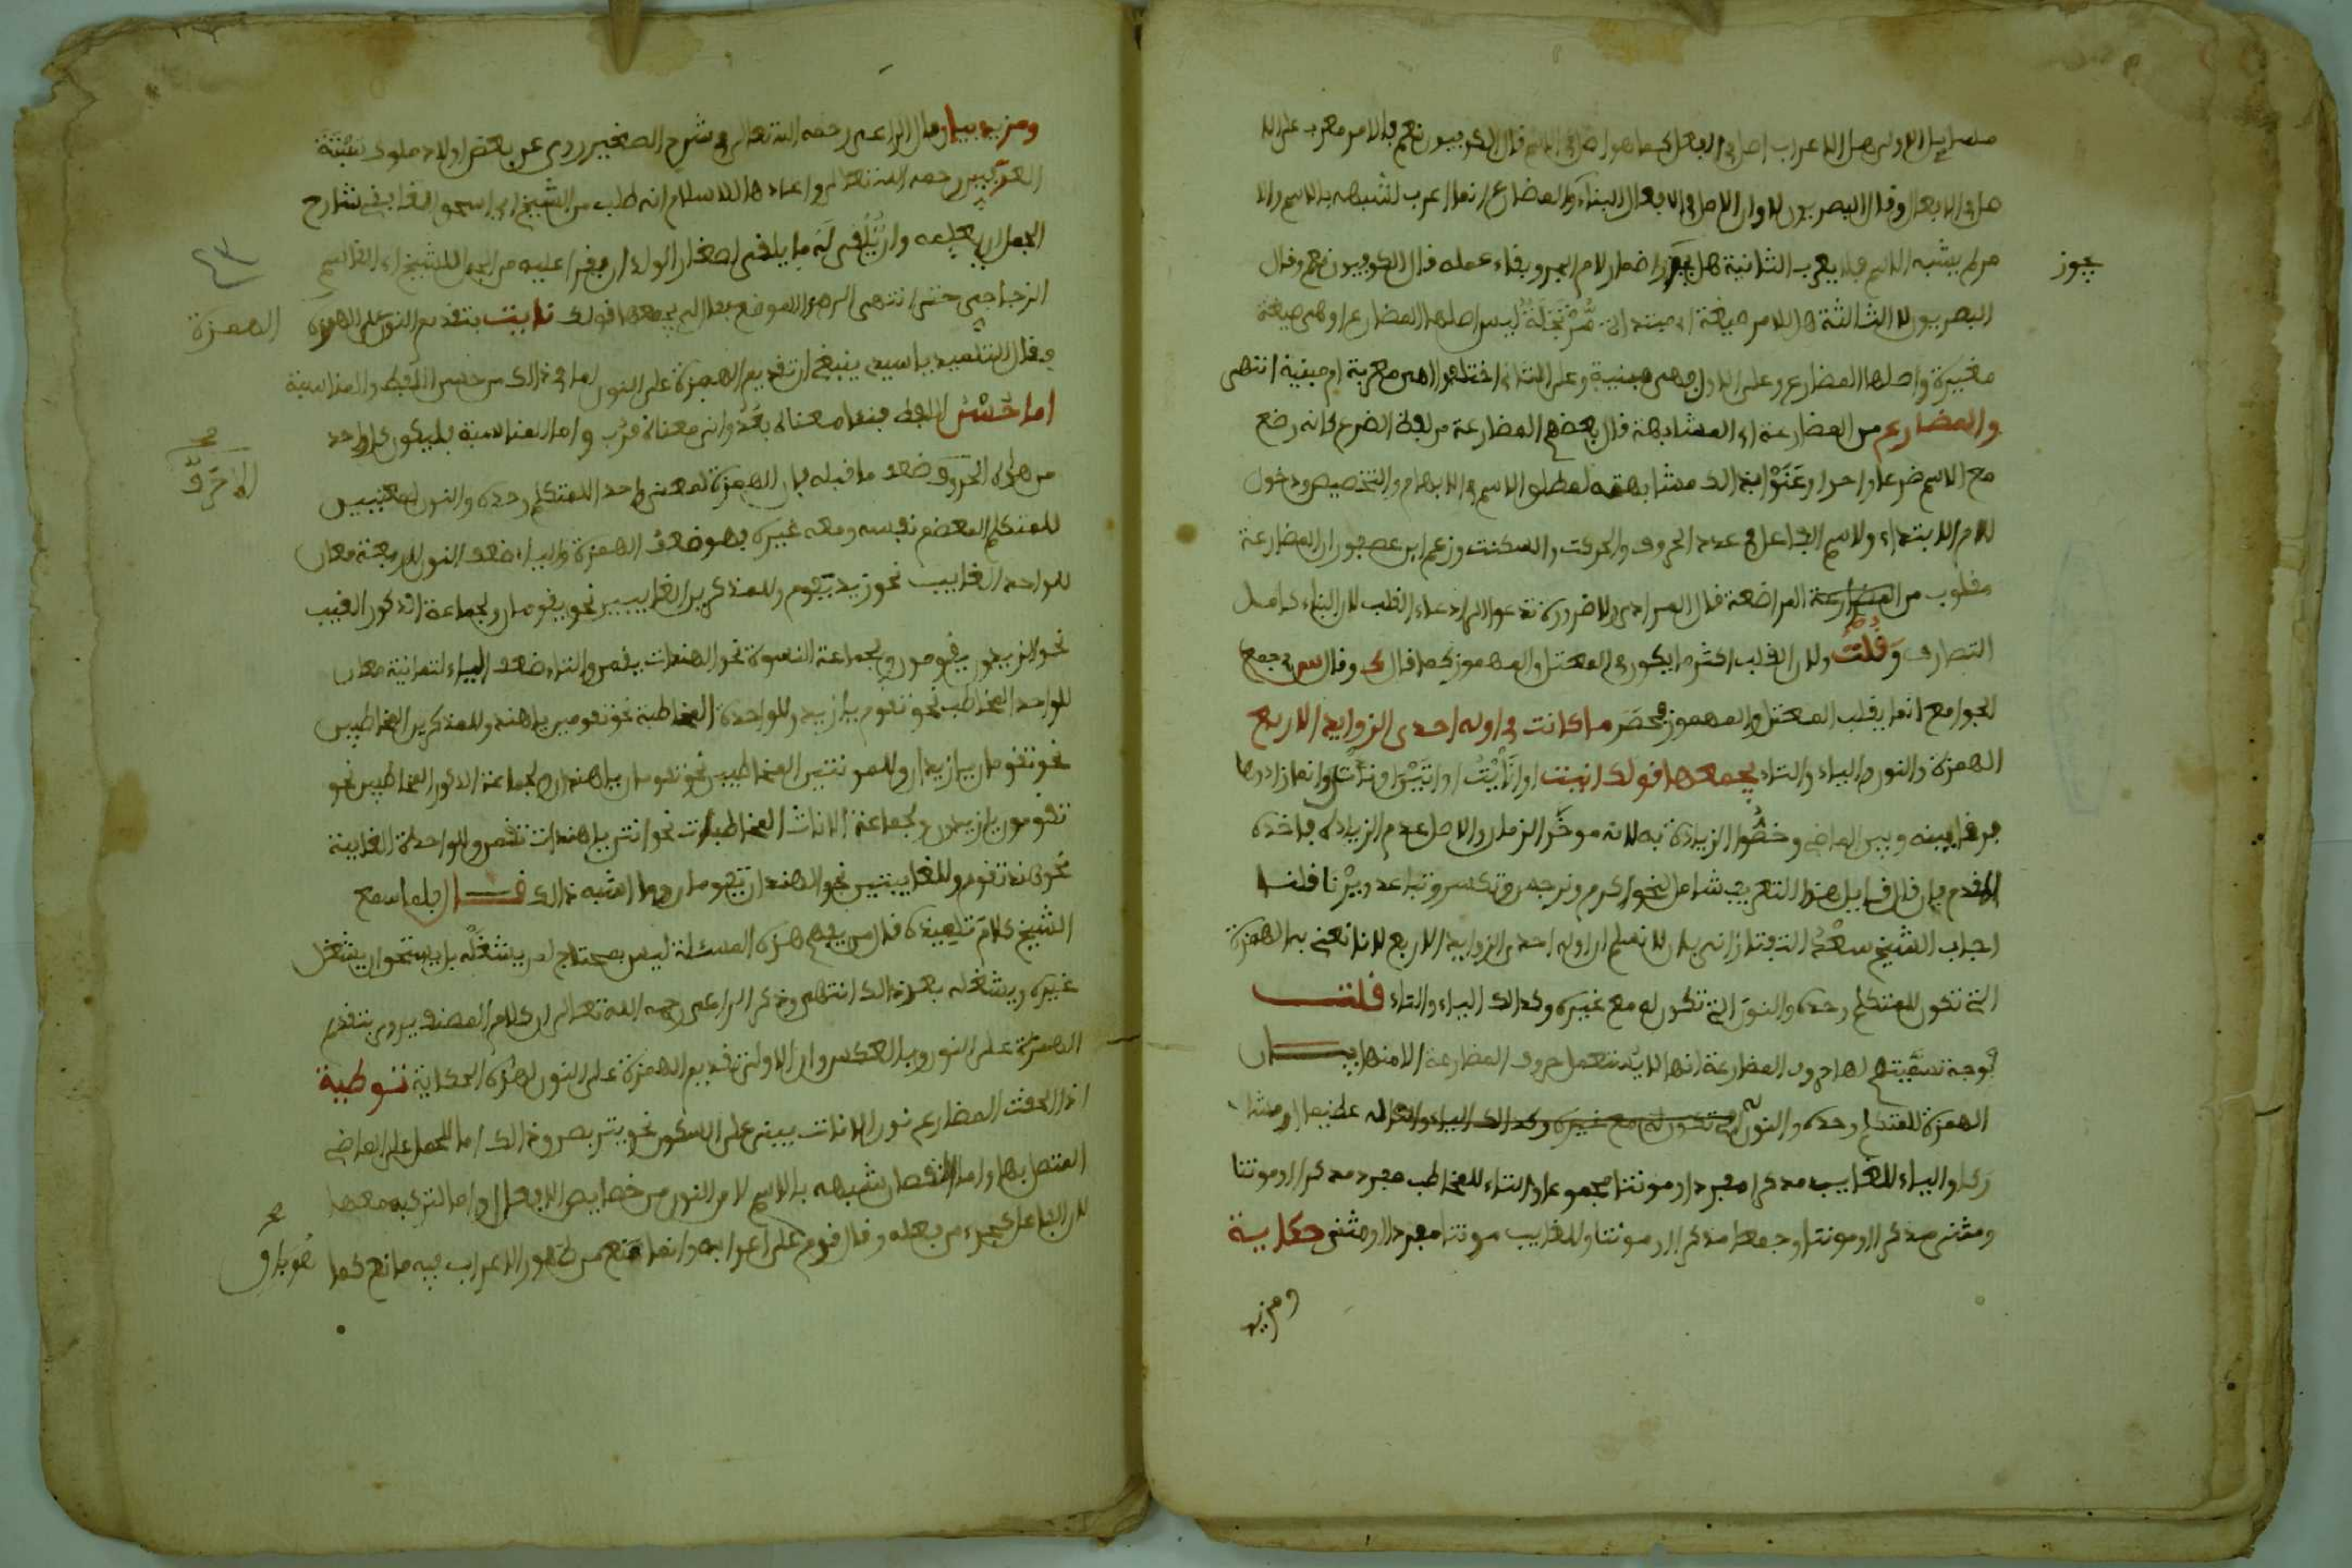 مسايل الاولى هل الاعراب اصل في الفعل كما هو اصل في الاسم قال الكوفيون نعم فالامر معرب على الا
صل في الافعال وقال البصريون لا وان الاصل في الافعال البناء والمضارع انما اعرب لشبهه بالاسم والا
مر لم يشبه الاسم فلا يعرب الثانية هل يجوز اضمار لام الجر وبقاء عمله قال الكوفيون نعم وقال
يجوز
البصريون لا الثالثة هل للامر صيغة مرتجلة ليس اصلها المضارع او هي صيغة
مغيرة واصلها المضارع وعلى الاول فهي مبنية وعلى الثاني اختلفوا هل هي معربة او مبنية انتهى
والمضارع من المضارعة اي المشابهة قال بعضهم المضارعة من لفظ الضرع كانه رضع
مع الاسم ضرعا واحدا وعنوا بذالك مشابهته لمطلق الاسم في الابهام والتخصيص ودخول
لام الابتداء ولاسم الفاعل في عدد الحروف والحركت والسكنت وزعم ابن عصفور ان المضارعة
مقلوب من المراضعة قال المرادي ولا ضرورة تدعو الى ادعاء القلب لان البناء كامل
التصارف وقلت ولان القلب اكثر ما يكون في المعتل والمهموز كما قال ك وقال س في جمع
الجوامع انما يقلب المعتل والمهموز محضر ما كانت في اوله احدى الزوايد الاربع
الهمزة والنون والياء والتاء يجمعها قولك انيت او انايت او ناتي وانما زادوها
فرقا بينه وبين الماضي وخصوا الزيادة به لانه موخر الزمان والاصل عدم الزيادة فاخذه
المقدم فان قال قايل هذا التعريف شامل لنحو اكرم ونرجس وتكسر وتباعد ويرنا قلنا
اجاب الشيخ سعد التفتازاني بان لا نعلم ان اوله احدى الزوايد الاربع لانا نعني بها الهمزة
التي تكون للمتكلم وحده والنون التي تكون له مع غيره وكذالك الياء والتاء قلت
ووجه تسميتهم لها حروف المضارعة انها لا تستعمل حروف المضارعة الا منها بيان
الهمزة للمتكلم وحده والنون له عظيما او مشا
ركا والياء للغايب مذكرا مفردا او مونثا مجموعا والتاء للمخاطب مفرد مذكرا او مونثا
ومثنى مذكرا او مونثا وجمعا مذكرا او مونثا وللغايب مونثا مفردا او مثنى حكاية
ومزيد
ومزيد بيان قال الراعي رحمه الله تعالى في شرح الصغير روى عن بعض اولاد ملوك سبتة
رحمه الله تعالى واعادها للاسلام انه طلب من الشيخ ابي اسحق الغافقي شارح
الجمل ان يعلمه وان يلقي له ما يلقى لصغار الولدان فقرا عليه من الجمل للشيخ ابي القاسم
الزجاجي حتى انتهى الى هذا الموضع فقال له يجمعها قولك نايت بتقديم النون على الهمزة
الهمزة
فقال التلميذ ياسيدي ينبغي ان تقديم الهمزة على النون لما في ذالك من حسن اللفظ والمناسبة
اما حسن اللفظ فنأيت معناه بعد وانيت معناه قرب واما المناسبة فليكون كل واحد
من هذه الحروف ضعف ما قبله فان الهمزة لمعنى واحد للمتكلم وحده والنون لمعنيين
الاحرف
للمتكلم المعظم نفسه ومعه غيره فهو ضعف الهمزة والياء ضعف النون لاربعة معان
للواحد الغايب نحو زيد يقوم وللمذكرين الغايبين نحو يقومان ولجماعة الذكور الغيب
نحو الزيدون يقومون ولجماعة النسوة نحو الهندات يقمن والتاء ضعف الياء لثمانية معان
للواحد المخاطب نحو تقوم يا زيد وللواحدة المخاطبة نحو تقومين يا هند وللمذكرين المخاطبين
نحو تقومان يا زيدان وللمونثتين المخاطبين نحو تقومان يا هندان ولجماعة الذكور المخاطبين نحو
تقومون يا زيدون ولجماعة الاناث المخاطبات نحو انتن يا هندات تقمن وللواحدة الغايبة
نحو هند تقوم وللغايبتين نحو الهندان تقومان وما اشبه ذالك قال فلما سمع
الشيخ كلام تلميذه قال من يفهم هذه المسئلة ليس بمحتاج لمن يشغله بل يستحق ان يشغل
غيره ويشغله بعد ذالك انتهى وذكر الراعي رحمه الله تعالى ان كلام المصنف يروى بتقديم
الهمزة على النون وبالعكس وان الاولى تقديم الهمزة على النون لهذه الحكاية توطية
اذا لحقت المضارع نون الاناث يبنى على السكون نحو يتربصن وذالك اما للحمل على الماضي
المتصل بها واما لنقصان شبهه بالاسم لان النون من خصايص الافعال واما لتركبه معها
لان الفاعل كجزء من فعله وقال قوم على اعرابه وانما منع من ظهور الاعراب فيه مانع كما
هو باق